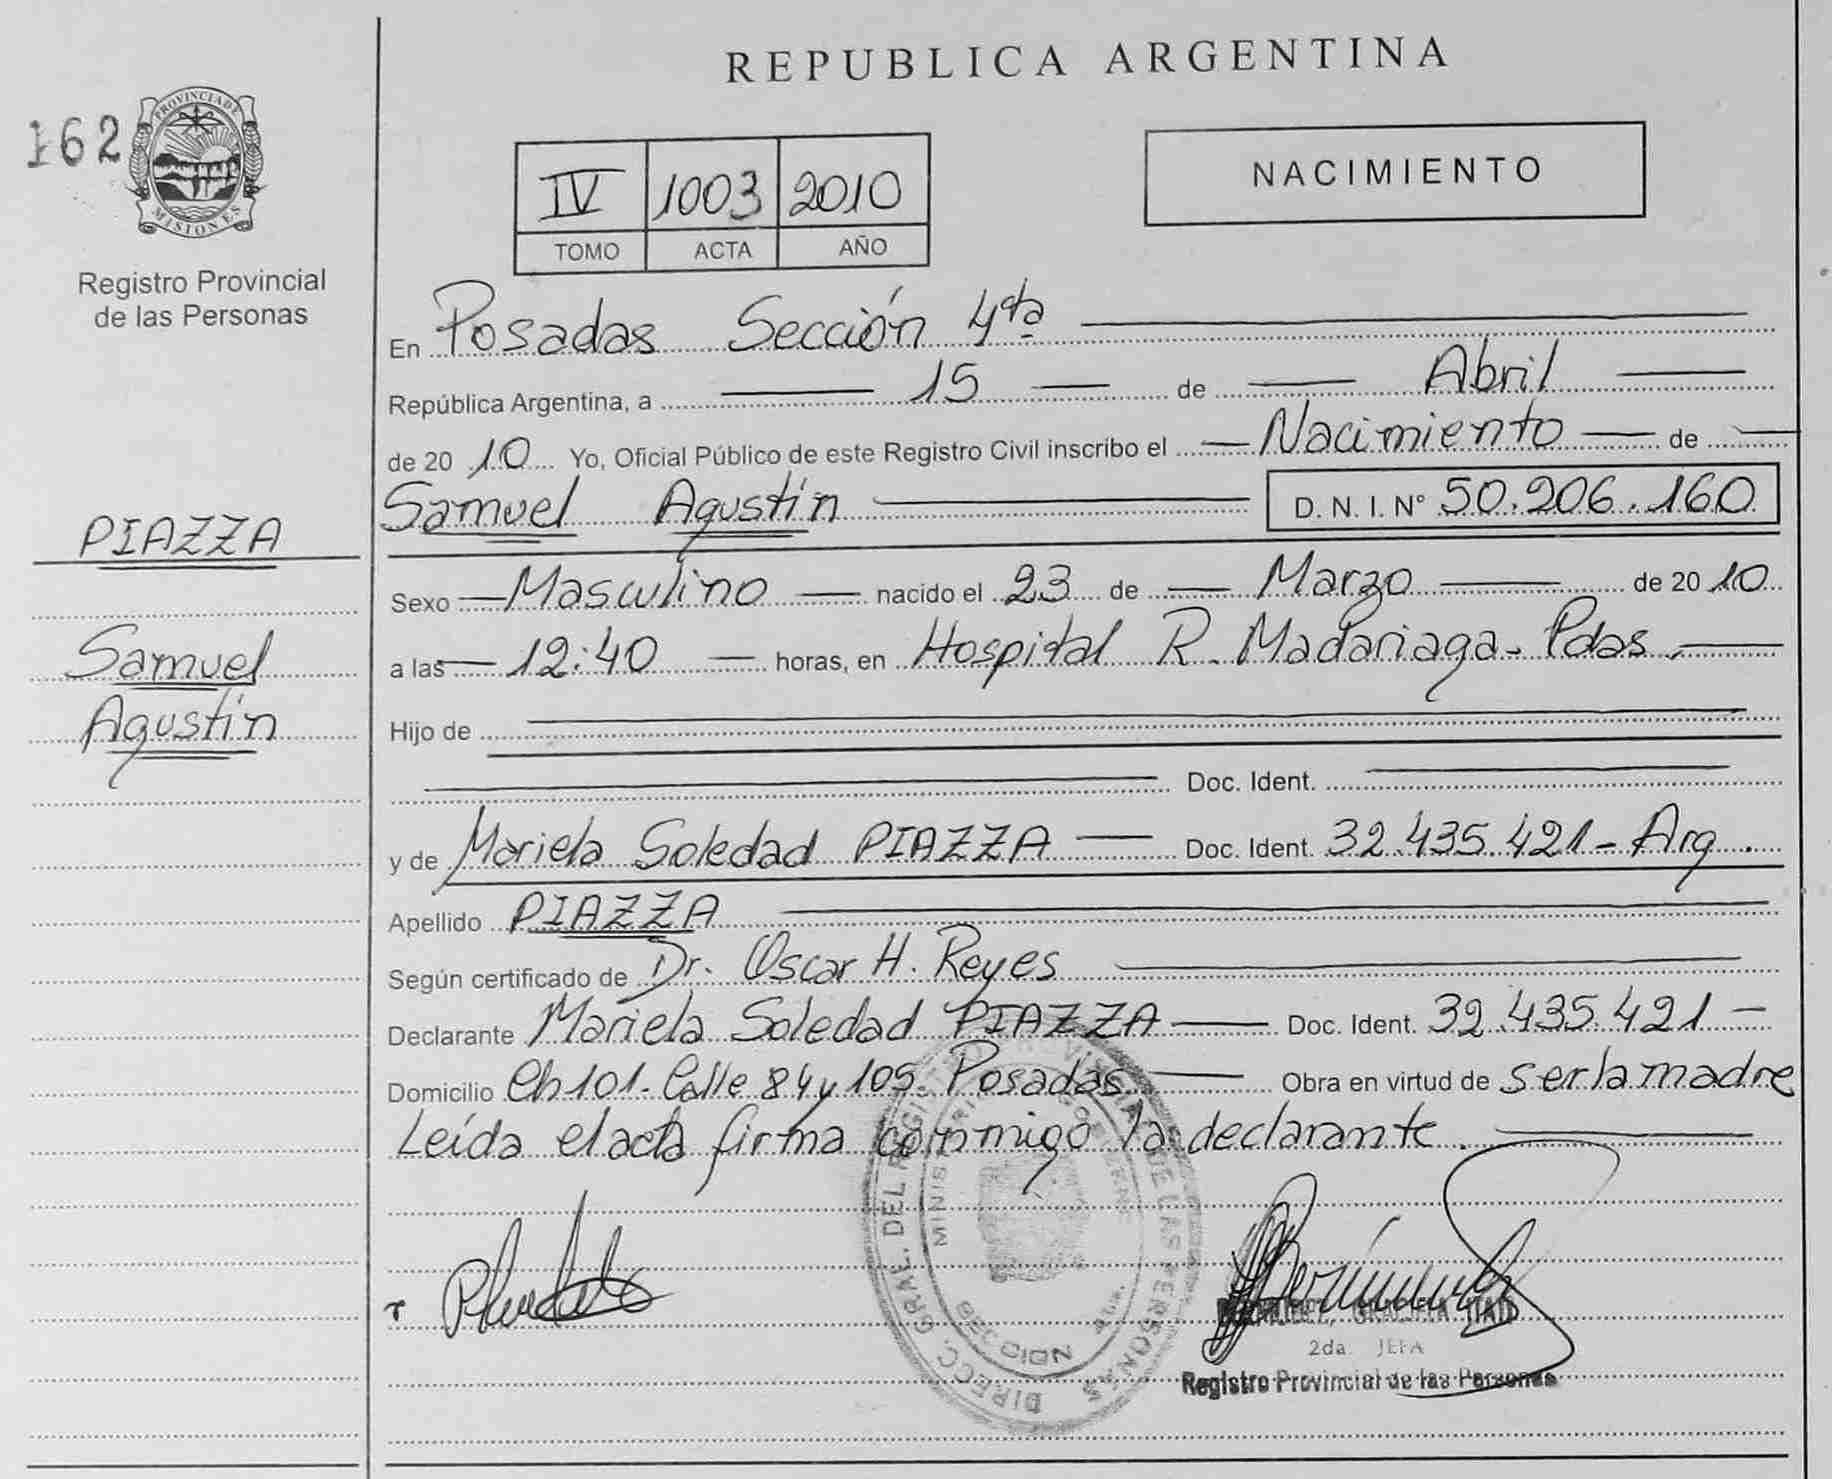 REPUBLICA ARGENTINA
162
PROVINCIA DE
MISIONES
Registro Provincial
de las Personas
IV 1003 2010
TOMO ACTA AÑO
NACIMIENTO
En Posadas Sección 4ta
República Argentina, a 15 de Abril
de 2010 Yo, Oficial Público de este Registro Civil inscribo el Nacimiento de
Samuel Agustín D. N. I. N° 50.206.160
PIAZZA
Samuel
Agustín
Sexo Masculino nacido el 23 de Marzo de 2010
a las 12:40 horas, en Hospital R. Madariaga - Pdas.
Hijo de
Doc. Ident.
y de Mariela Soledad PIAZZA Doc. Ident. 32.435.421 - Arg.
Apellido PIAZZA
Según certificado de Dr. Oscar H. Reyes
Declarante Mariela Soledad PIAZZA Doc. Ident. 32.435.421 -
Domicilio Ch 101 - Calle 84 y 105. Posadas Obra en virtud de ser la madre
Leída el acta firma conmigo la declarante.
DIRECC. GRAL. DEL REGISTRO PROVINCIAL DE LAS PERSONAS
2da. JEFA
Registro Provincial de las Personas